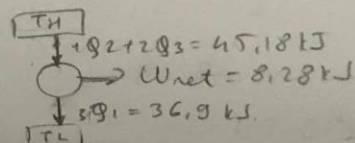 TH
1Q2+2Q3=45,18kJ
Wnet = 8,28kJ
3Q1=36,9 kJ.
TL